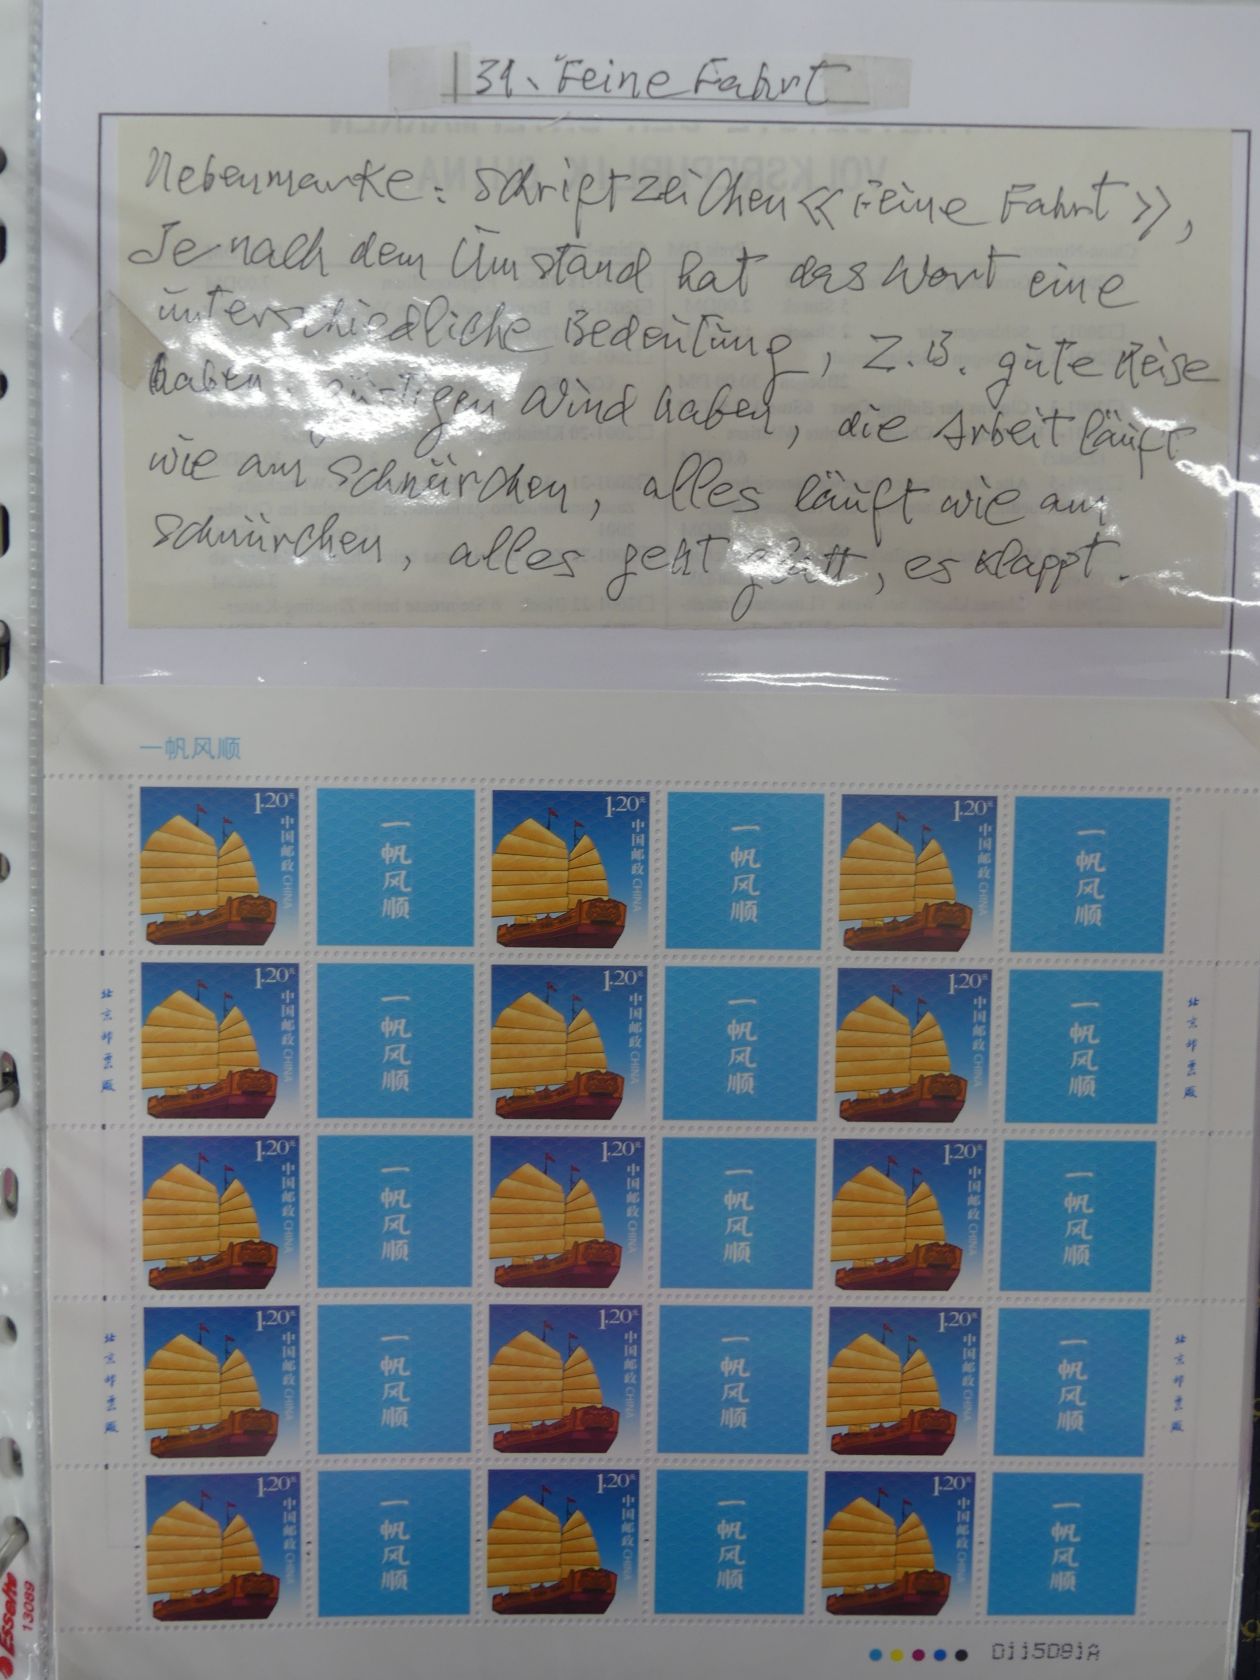 31. Feine Fahrt
Nebenmarke: Schriftzeichen «Feine Fahrt»,
Je nach dem Umstand hat das Wort eine
unterschiedliche Bedeutung, z.B. gute Reise
haben, günstigen Wind haben, die Arbeit läuft
wie am Schnürchen, alles läuft wie am
Schnürchen, alles geht glatt, es klappt.
VOLKSREPUBLIK CHINA
一帆风顺
1.20元 中国邮政 CHINA 一帆风顺 1.20元 中国邮政 CHINA 一帆风顺 1.20元 中国邮政 CHINA 一帆风顺
北京邮票厂 1.20元 中国邮政 CHINA 一帆风顺 1.20元 中国邮政 CHINA 一帆风顺 1.20元 中国邮政 CHINA 一帆风顺 北京邮票厂
1.20元 中国邮政 CHINA 一帆风顺 1.20元 中国邮政 CHINA 一帆风顺 1.20元 中国邮政 CHINA 一帆风顺
北京邮票厂 1.20元 中国邮政 CHINA 一帆风顺 1.20元 中国邮政 CHINA 一帆风顺 1.20元 中国邮政 CHINA 一帆风顺 北京邮票厂
1.20元 中国邮政 CHINA 一帆风顺 1.20元 中国邮政 CHINA 一帆风顺 1.20元 中国邮政 CHINA 一帆风顺
D115081A
Esselte
13089